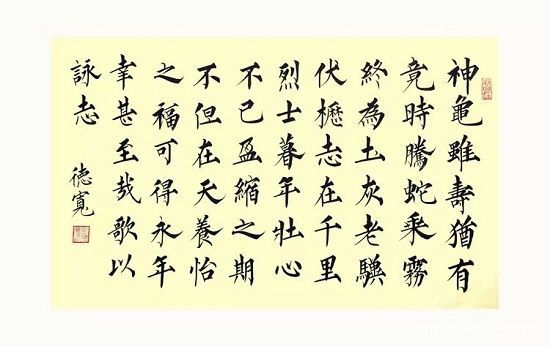 神龜雖壽猶有
竟時騰蛇乘霧
終為土灰老驥
伏櫪志在千里
烈士暮年壯心
不已盈縮之期
不但在天養怡
之福可得永年
幸甚至哉歌以
詠志
德寬